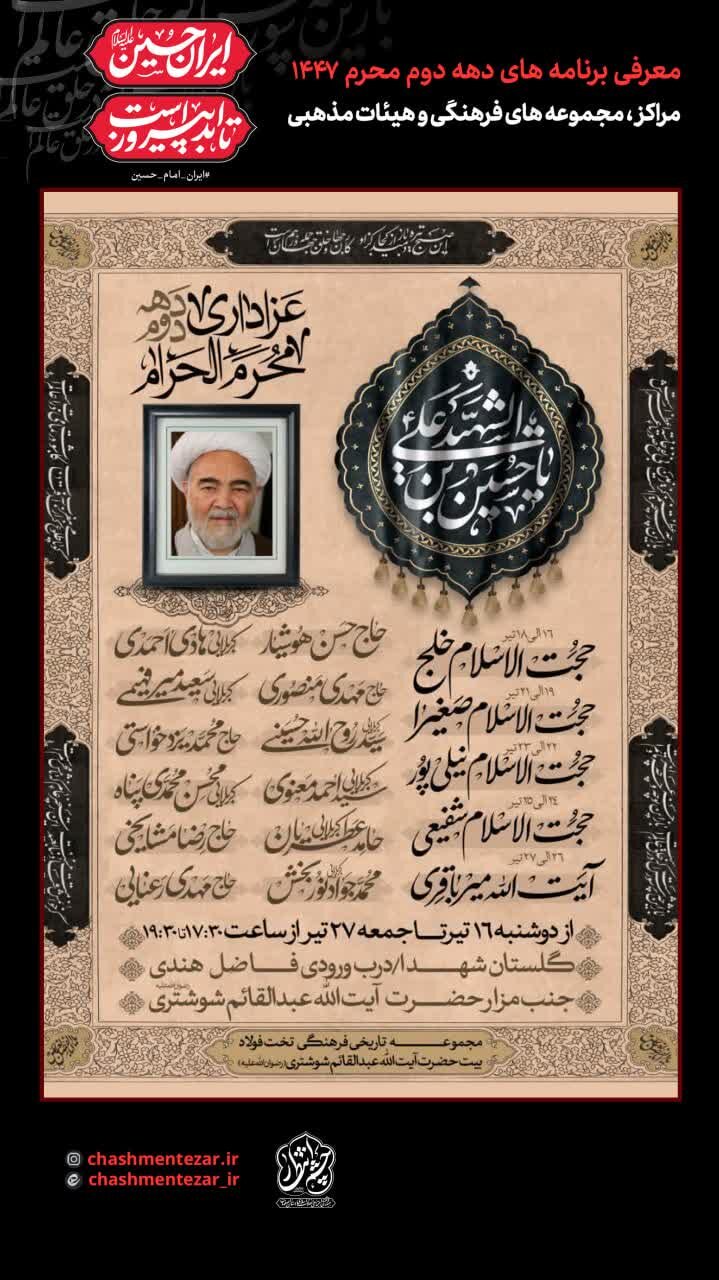 معرفی برنامه های دهه دوم محرم ۱۴۴۷
مراکز، مجموعه های فرهنگی و هیئات مذهبی
ایران حسین علیه‌السلام
تا ابد پیروز است
#ایران_امام_حسین
عزاداری دهه دوم
محرم الحرام
یا حسین بن علی الشهید
۱۶ الی ۱۸ تیر
حجت الاسلام خلج
۱۹ الی ۲۱ تیر
حجت الاسلام صغیرا
۲۲ الی ۲۳ تیر
حجت الاسلام نیلی پور
۲۴ الی ۲۵ تیر
حجت الاسلام شفیعی
۲۶ الی ۲۷ تیر
آیت الله میرباقری
حاج حسن هوشیار
کربلایی هادی احمدی
حاج مهدی منصوری
کربلایی سعید میرفهیمی
کربلایی سید روح الله حسینی
حاج محمد یزدخواستی
کربلایی سید احمد معنوی
کربلایی محسن محمدی پناه
کربلایی حامد عطریان
حاج رضا مشایخی
کربلایی محمدجواد نوربخش
حاج مهدی رعنایی
از دوشنبه ۱۶ تیر تا جمعه ۲۷ تیر از ساعت ۱۷:۳۰ تا ۱۹:۳۰
گلستان شهدا/درب ورودی فاضل هندی
جنب مزار حضرت آیت الله عبدالقائم شوشتری
مجموعه تاریخی فرهنگی تخت فولاد
بیت حضرت آیت الله عبدالقائم شوشتری (رضوان الله علیه)
chashmentezar.ir
chashmentezar_ir
چشم انتظار